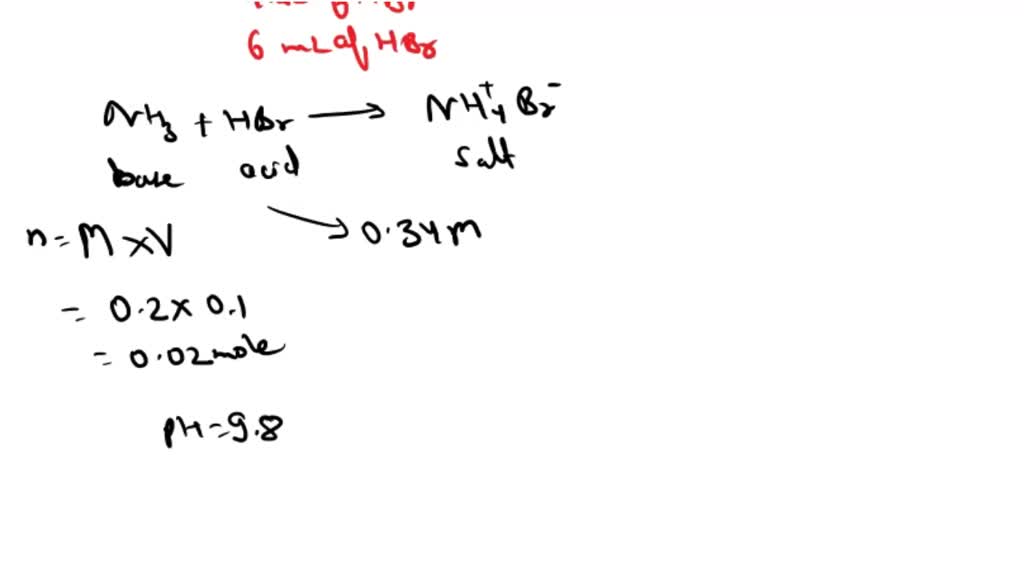 6 mL of HBr
NH3 + HBr → NH4+ Br-
base acid salt
n = M × V → 0.34 M
= 0.2 × 0.1
= 0.02 mole
pH = 9.8